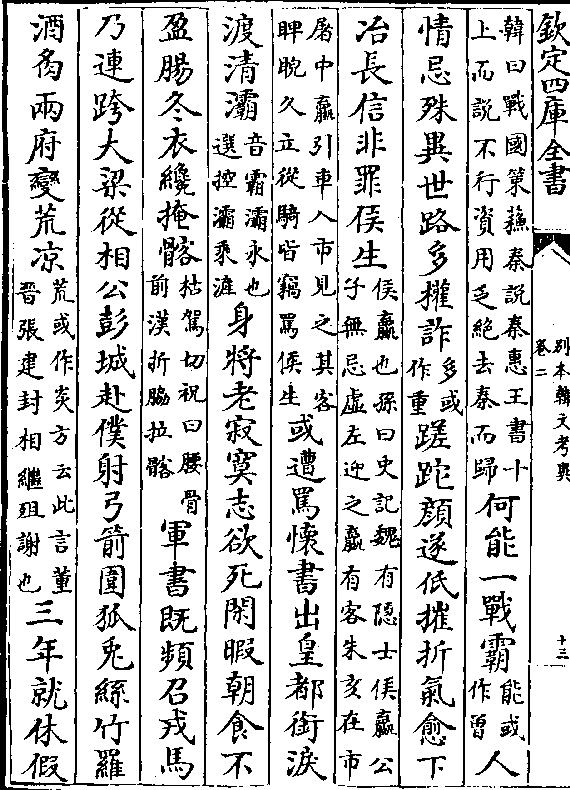 欽定四庫全書
別本韓文考異
卷二
十三
韓曰戰國策蘇秦說秦惠王書十
上而說不行資用乏絕去秦而歸
何能一戰霸
能或
作曾
人
情忌殊異世路多權詐
多或
作重
蹉跎顏遂低摧折氣愈下
冶長信非罪侯生
侯嬴也孫曰史記魏有隱士侯嬴公
子無忌虛左迎之嬴有客朱亥在市
屠中嬴引車入市見之其客
睥睨久立從騎皆竊罵侯生
或遭罵懷書出皇都銜淚
渡清灞
音霸灞水也
選控灞乘滻
身將老寂寞志欲死閑暇朝食不
盈腸冬衣纔掩髂
枯駕切祝曰腰骨
前漢折脇拉髂
軍書既頻召戎馬
乃連跨大梁從相公彭城赴僕射弓箭圍狐兔絲竹羅
酒炙兩府變荒凉
荒或作炎方云此言董
晉張建封相繼殂謝也
三年就休假